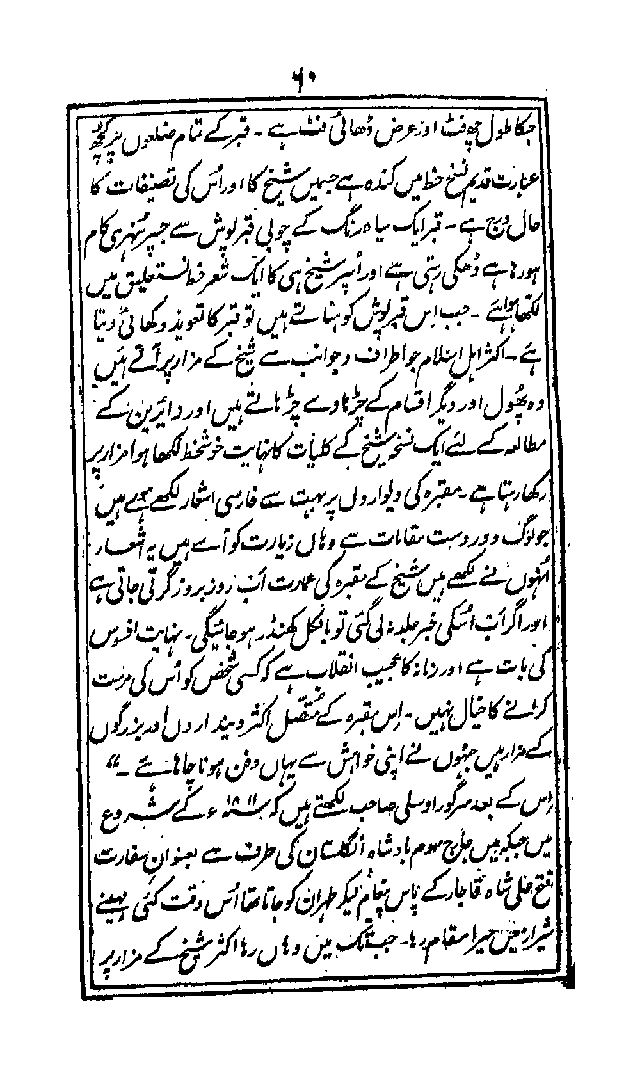 ۶۰
جسکا طول چھ فٹ اور عرض ڈھائی فٹ ہے ۔ قبر کے تمام ضلعوں پر کچھ
عبارت قدیم نسخ خط میں کندہ ہے جسمیں شیخ کا اور اُس کی تصنیفات کا
حال درج ہے ۔ قبر ایک سیاہ رنگ کے چوبی قبر پوش سے جسپر سُنہری کام
ہو رہا ہے ڈھکی رہتی ہے اور اُسپر شیخ ہی کا ایک شعر خط نستعلیق میں
لکھا ہوا ہے ۔ جب اِس قبر پوش کو ہٹاتے ہیں تو قبر کا تعویذ دکھائی دیتا
ہے ۔ اکثر اہل اِسلام جو اطراف و جوانب سے شیخ کے مزار پر آتے ہیں
وہ پھُول اور دیگر اقسام کے چڑھاوے چڑھاتے ہیں اور زائرین کے
مطالعہ کے لئے ایک نسخہ شیخ کے کلیات کا نہایت خوشخط لکھا ہوا مزار پر
رکھا رہتا ہے ۔ مقبرہ کی دیواروں پر بہت سے فارسی اشعار لکھے ہوئے ہیں
جو لوگ دور دست مقامات سے وہاں زیارت کو آئے ہیں یہ اشعار
اُنہوں نے لکھے ہیں شیخ کے مقبرہ کی عمارت اب روز بروز گرتی جاتی ہے
اور اگر اب اسکی خبر جلد نہ لی گئی تو بالکل کھنڈر ہو جائیگی ۔ نہایت افسوس
کی بات ہے اور زمانہ کا عجیب انقلاب ہے کہ کسی شخص کو اُس کی مرمت
کرانے کا خیال نہیں ۔ اِس مقبرہ کے متصل اکثر دیندار دن اور بزرگوں
کے مزار ہیں جنہوں نے اپنی خواہش سے یہاں دفن ہونا چاہا ہے ۔"
اِس کے بعد سرگور اوسلی صاحب لکھتے ہیں کہ ۱۸۱۱ء کے شروع
میں جبکہ میں جارج سوم بادشاہ انگلستان کی طرف سے بعنوان سفارت
فتح علی شاہ قاچار کے پاس پیغام لیکر طہران کو جاتا تھا اُس وقت کئی مہینے
شیراز میں میرا مقام رہا ۔ جب تک میں وہاں رہا اکثر شیخ کے مزار پر